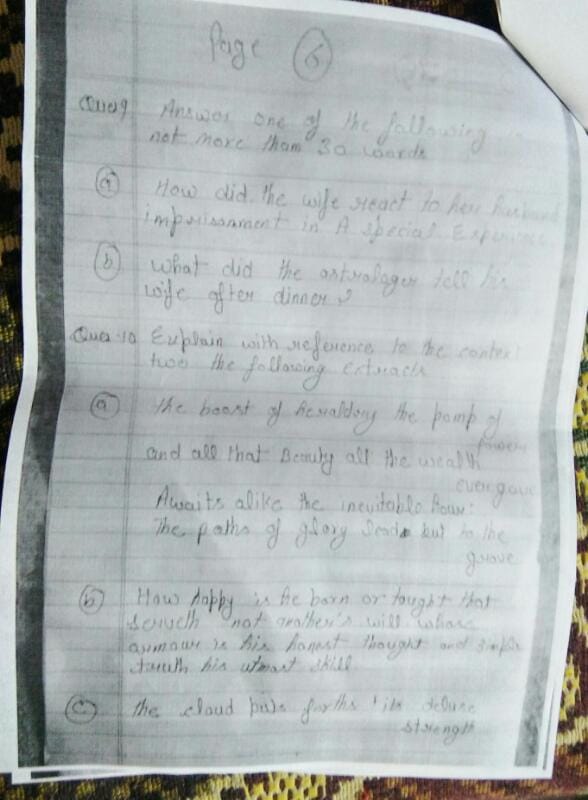 Page 6
Ques 9 Answer one of the following
not more than 30 words
(a) How did the wife react to her husband
imprisonment in A special Experience
(b) What did the astrologer tell his
wife after dinner?
Ques-10 Explain with reference to the context
two the following extracts
(a) the boast of heraldry the pomp of
power
and all that Beauty all the wealth
ever gave
Awaits alike the inevitable hour:
The paths of glory leads but to the
grave
(b) How happy is he born or taught that
serveth not another's will whose
armour is his honest thought and simple
truth his utmost skill.
(c) the cloud puts forths its
strength